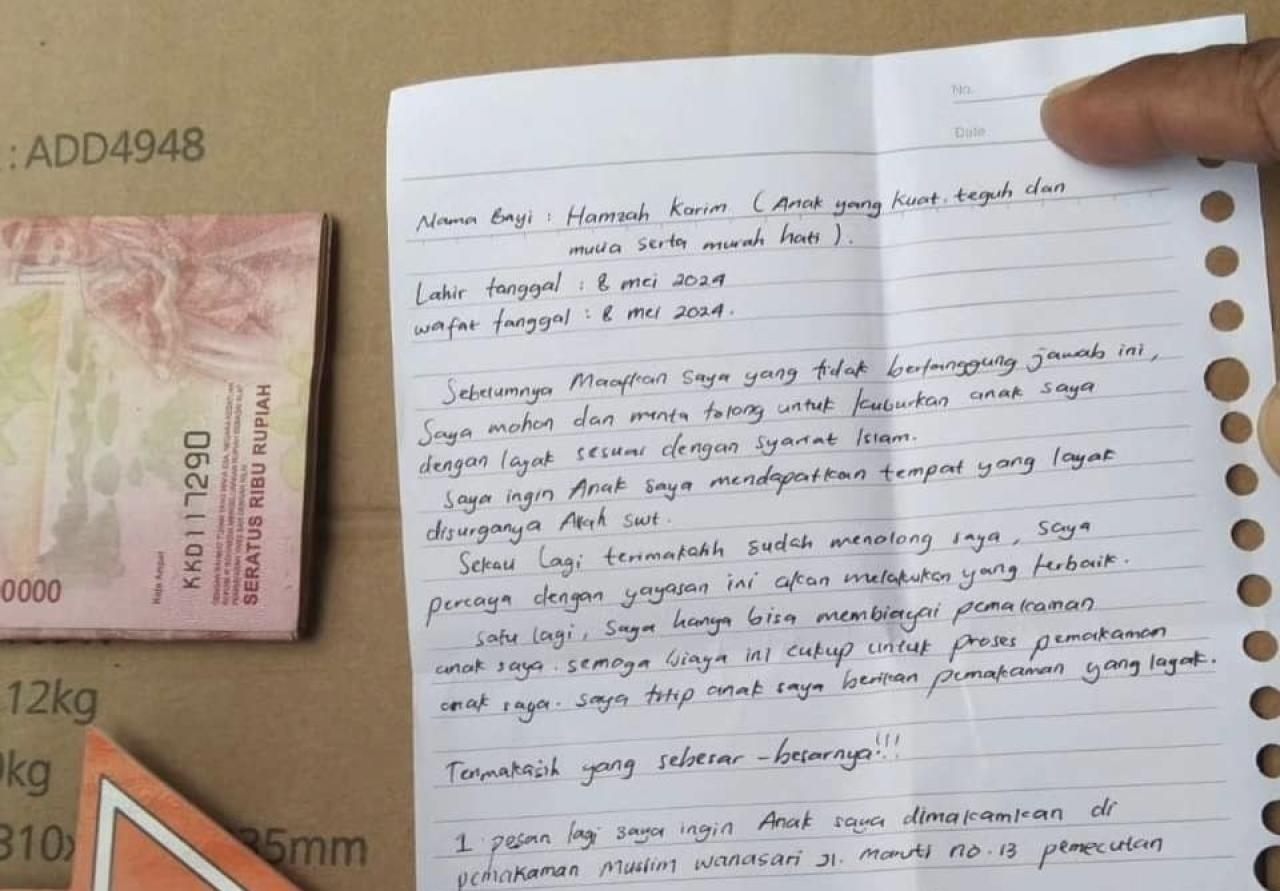 : ADD4948
No.
Date
Nama Bayi : Hamzah Karim (Anak yang kuat. teguh dan
mulia serta murah hati).
Lahir tanggal : 8 mei 2024
wafat tanggal : 8 mei 2024.
Sebelumnya Maafkan saya yang tidak bertanggung jawab ini,
Saya mohon dan minta tolong untuk kuburkan anak saya
dengan layak sesuai dengan syariat Islam.
Saya ingin Anak saya mendapatkan tempat yang layak
disurganya Allah swt.
Sekali Lagi terimakahh sudah menolong saya, saya
percaya dengan yayasan ini akan melakukan yang terbaik.
satu lagi, saya hanya bisa membiayai pemakaman
anak saya. semoga biaya ini cukup untuk proses pemakaman
anak saya. saya titip anak saya berikan pemakaman yang layak.
Terimakasih yang sebesar-besarnya!!!
1 pesan lagi saya ingin Anak saya dimakamkan di
pemakaman Muslim wanasari Jl. maruti no.13 pemecutan
KKD117290
SERATUS RIBU RUPIAH
0000
12kg
kg
310x
35mm